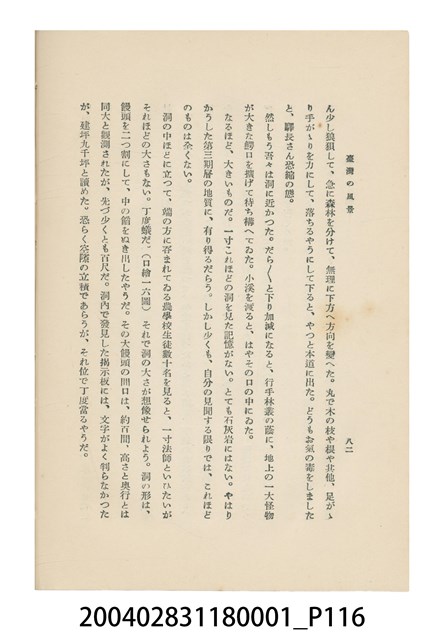 臺灣の風景
八二
ん少し狼狽して、急に森林を分けて、無理に下方へ方向を變つた。丸で木の枝や根や其他、足がゝ
り手がゝりを力にして、落ちるやうにして下ると、やつと本道に出た。どうもお氣の毒をしました
と、驛長さん恐縮の態。
然しもう吾々は洞に近かつた。だら〳〵と下り加減になると、行手林叢の蔭に、地上の一大怪物
が大きな鰐口を擴げて待ち構へてゐた。小溪を渡ると、はやその口の中にゐた。
なるほど、大きいものだ。一寸これほどの洞を見た記憶がない。とても石灰岩にはない。やはり
かうした第三期層の地質に、有り得るだらう。しかし少くも、自分の見聞する限りでは、これほど
のものは全くない。
洞の中ほどに立つて、端の方に呑まれてゐる農學校生徒數十名を見ると、一寸法師といひたいが
それほどの大さもない。丁度蟻だ。(口繪一六圖) それで洞の大さが想像せられよう。洞の形は、
饅頭を二つ割にして、中の餡をぬき出したやうだ。その大饅頭の間口は、約百間、高さと奧行とは
同大と觀測されたが、先づ少くとも百尺だ。洞内で發見した揭示板には、文字がよく判らなかつた
が、建坪九千坪と讀めた。恐らく空隙の立積であらうが、それ位で丁度當るやうだ。
200402831180001_P116